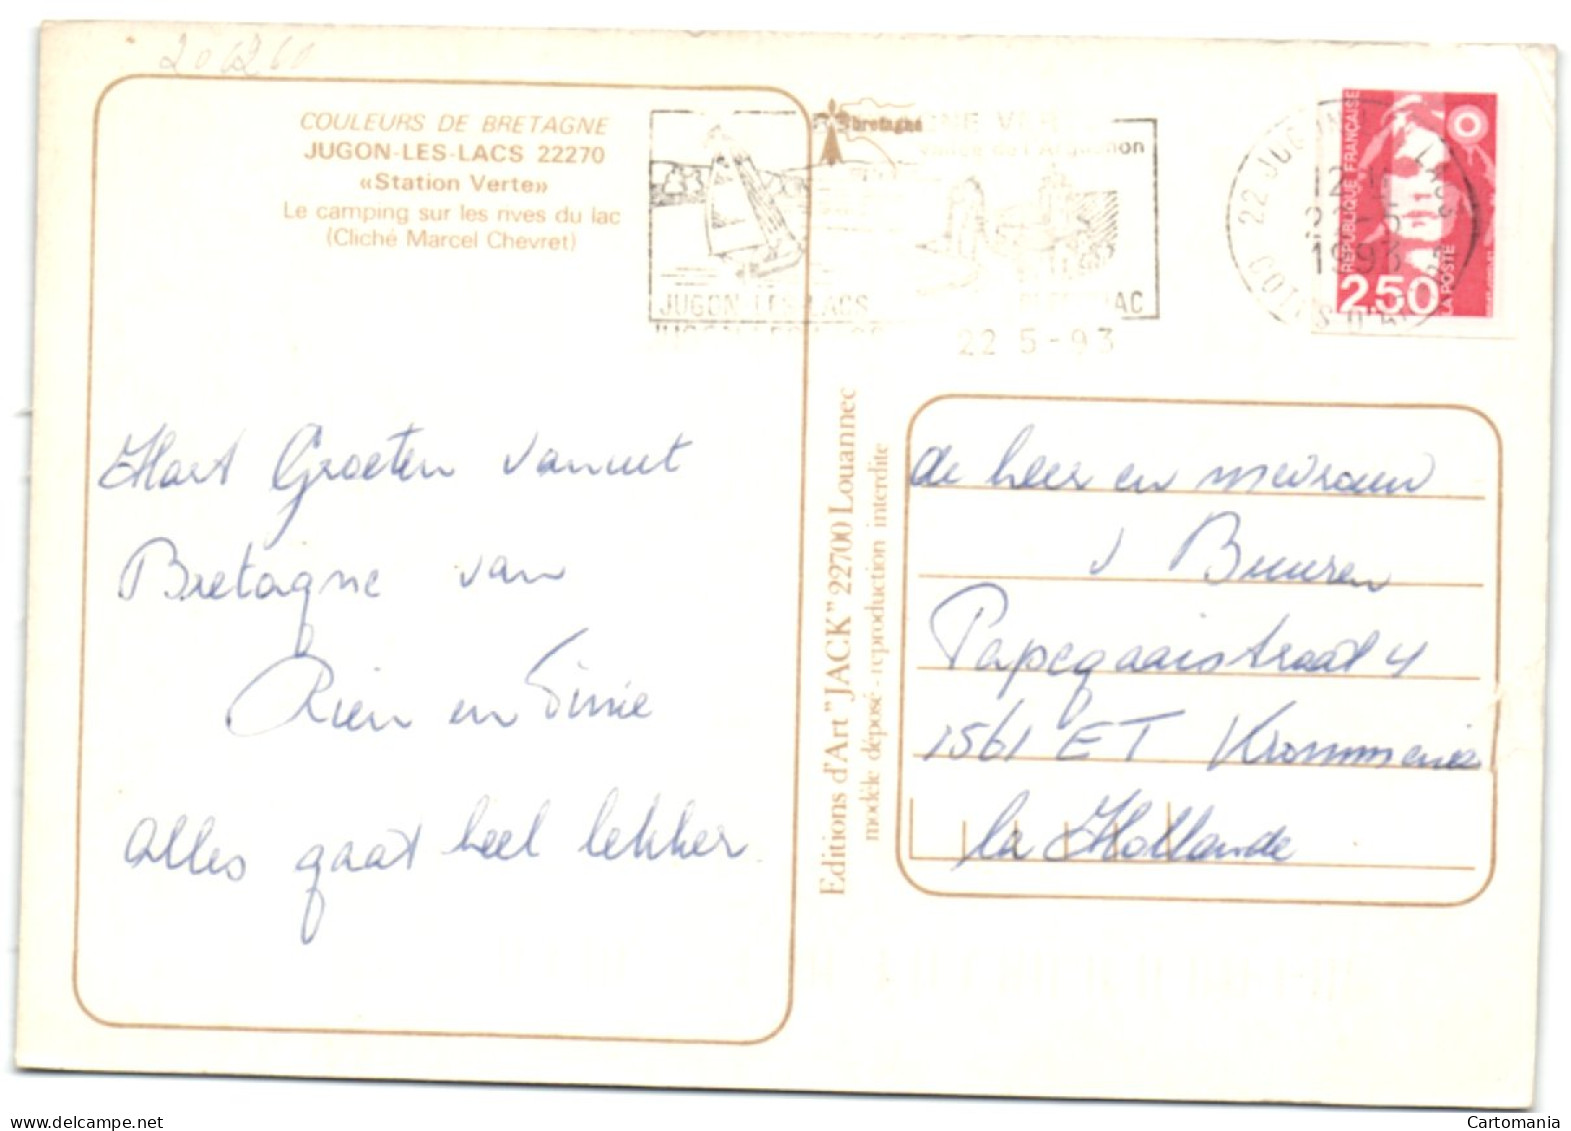 206260
COULEURS DE BRETAGNE
JUGON-LES-LACS 22270
«Station Verte»
Le camping sur les rives du lac
(Cliché Marcel Chevret)
bretagne
Vallée de l'Arguenon
JUGON-LES-LACS
22 5-93
22 JUGON LES LACS
COTES D'AR
1993
REPUBLIQUE FRANÇAISE
2,50
LA POSTE
Hart Groeten vanuit
Bretagne van
Rien en Tinie
alles gaat heel lekker
Editions d'Art "JACK" 22700 Louannec
modèle déposé - reproduction interdite
de heer en mevrouw
v Buuren
Papegaaistraat 4
1561 ET Krommenie
la Hollande
Cartomania